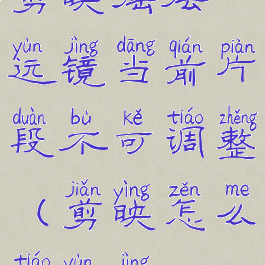 剪映运法
yùn jìng dāng qián piàn
远镜当前片
duàn bù kě tiáo zhěng
段不可调整
jiǎn yìng zěn me
（剪映怎么
tiáo yùn jìng